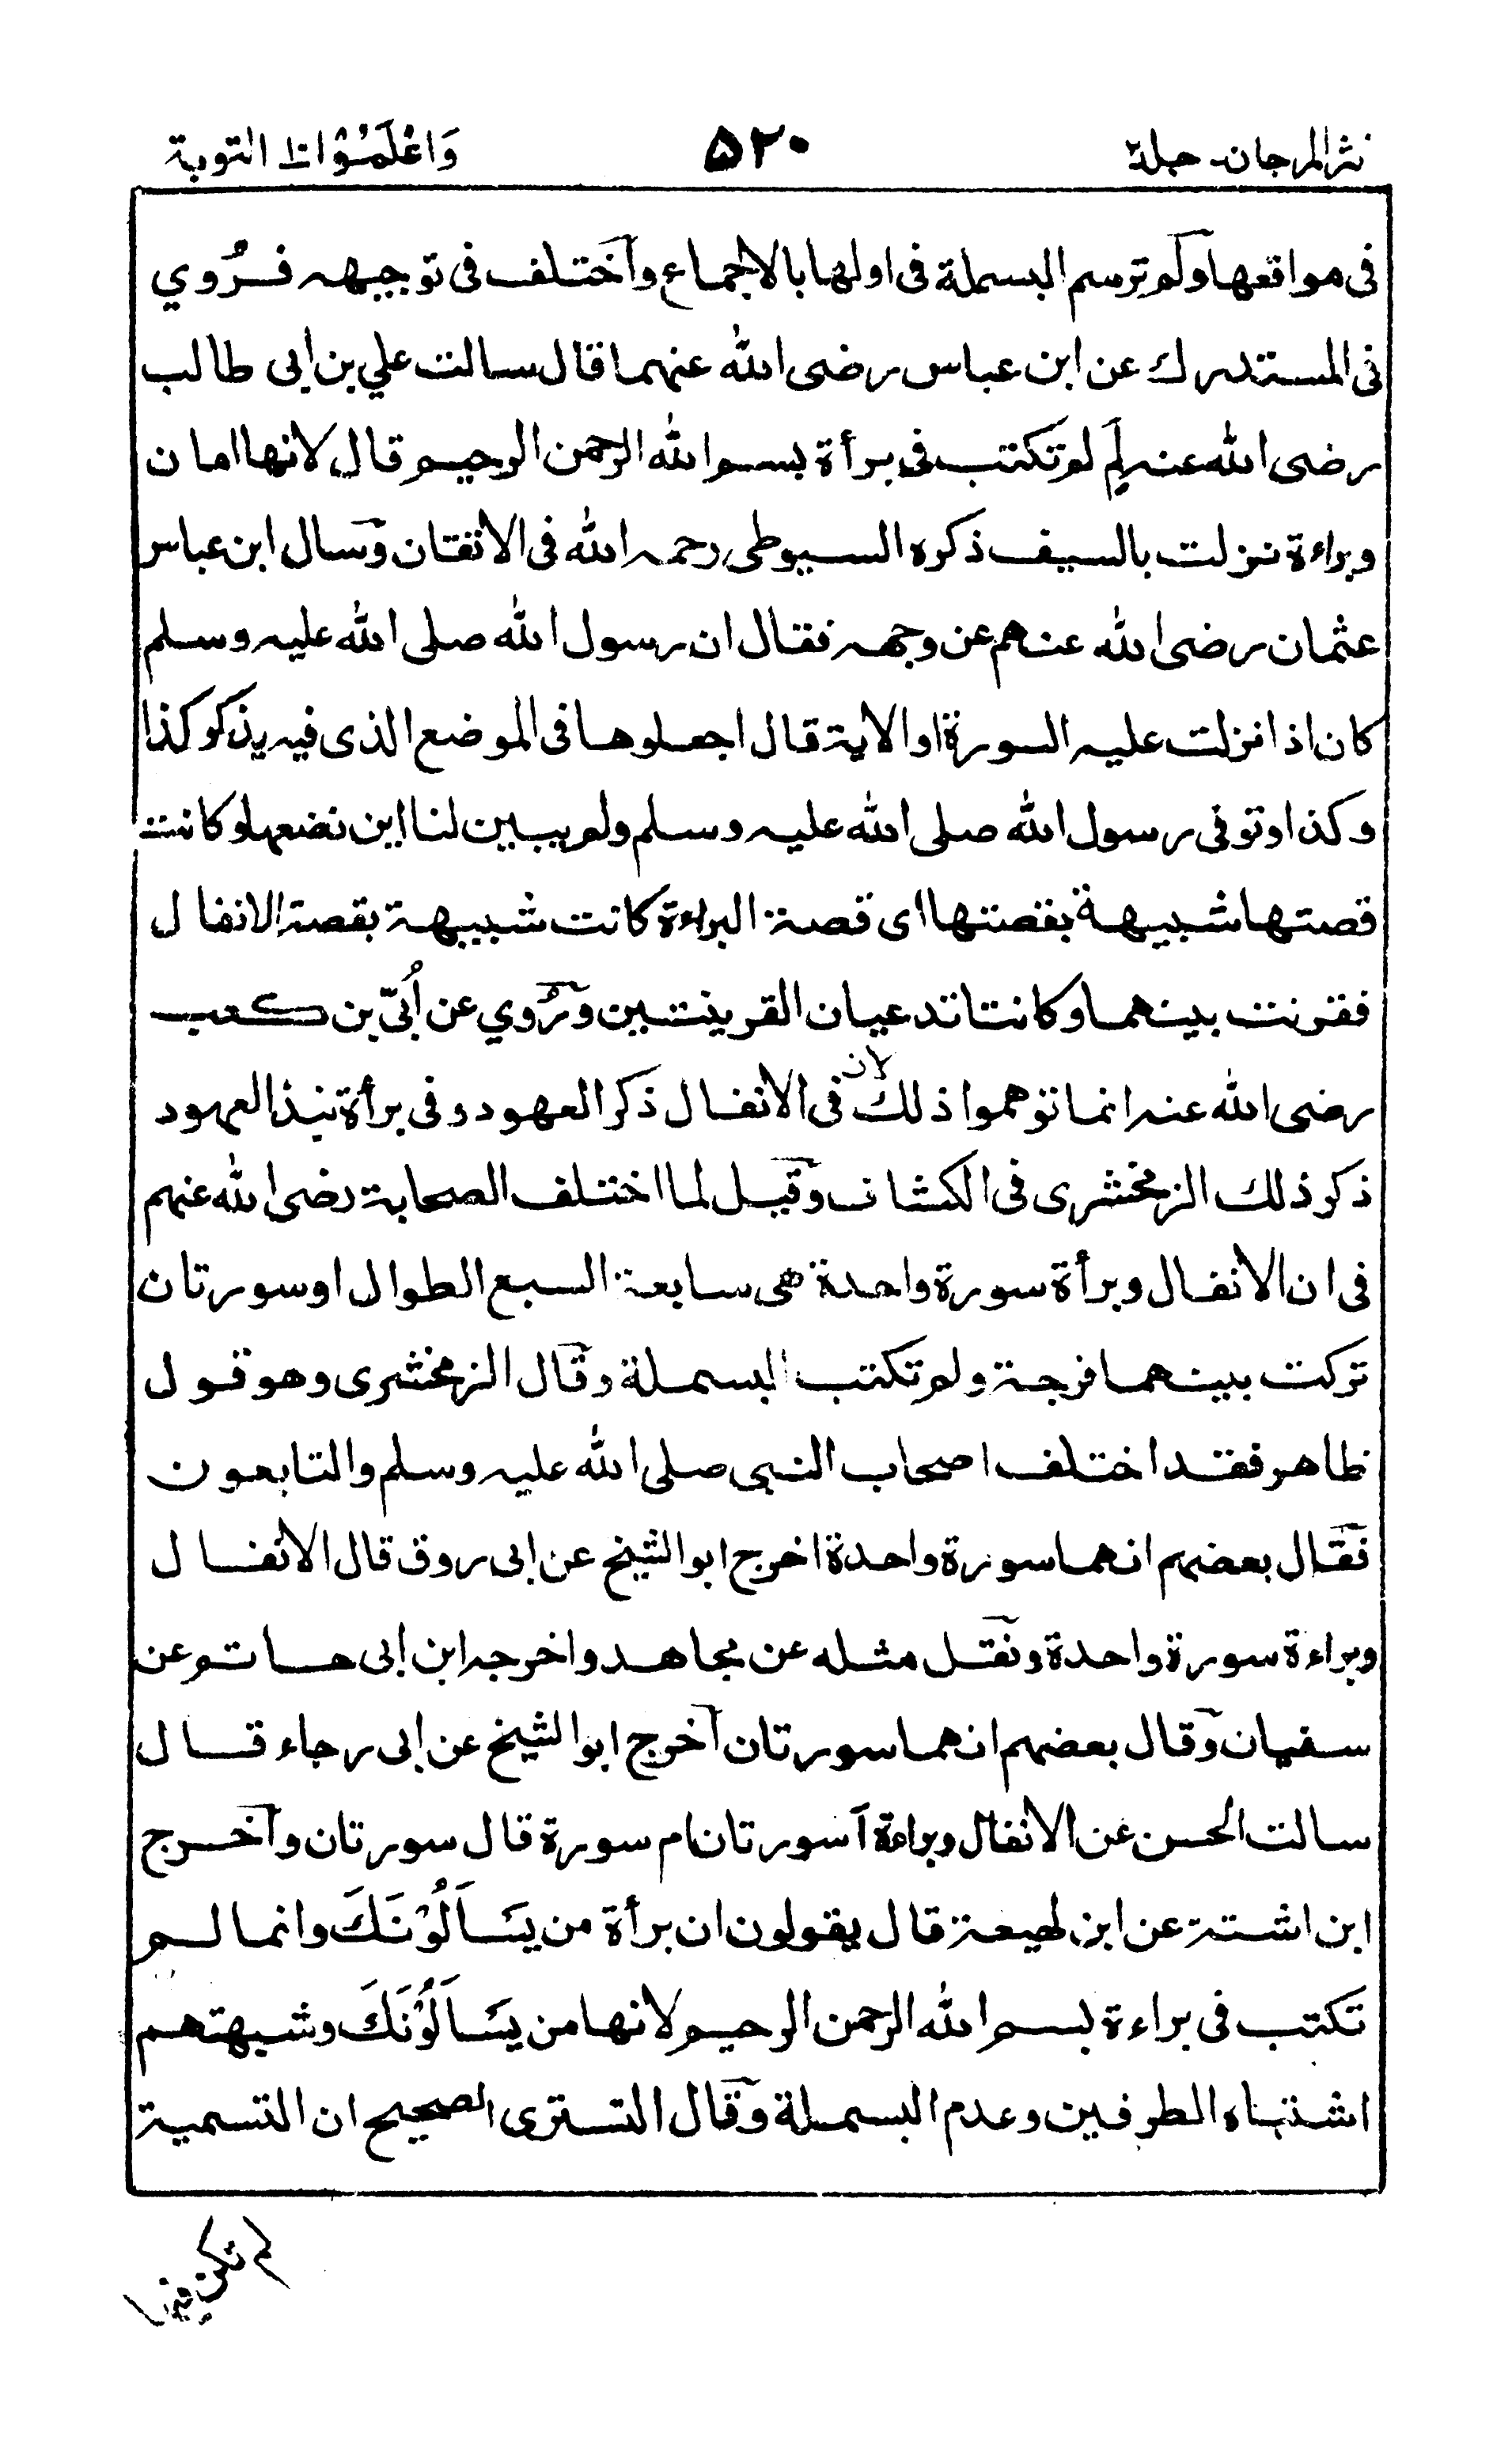 نثر المرجان- جلد۲
۵۲۰
وَاعْلَمُوْا۱۰ التوبة
فى مواقعها ولم ترسم البسملة فى اولها بالاجماع واختلف فى توجيهه فرُوي
فى المستدرك عن ابن عباس رضى الله عنهما قال سالت علي بن ابى طالب
رضى الله عنه لِمَ لم تكتب فى برأة بسم الله الرحمن الرحيم قال لانها امان
وبراءة نزلت بالسيف ذكره السيوطى رحمه الله فى الاتقان وسال ابن عباس
عثمان رضى الله عنهم عن وجهه فقال ان رسول الله صلى الله عليه وسلم
كان اذا نزلت عليه السورة او الاية قال اجعلوها فى الموضع الذى فيه يذكر كذا
وكذا وتوفى رسول الله صلى الله عليه وسلم ولم يبين لنا اين نضعها وكانت
قصتها شبيهة بقصتها اى قصة البراءة كانت شبيهة بقصة الانفال
فقرنت بينهما وكانتا تدعيان القرينتين ورُوي عن اُبىّ بن كعب
رضى الله عنه انما توهموا ذلك لان فى الانفال ذكر العهود وفى برأة نبذ العهود
ذكر ذلك الزمخشرى فى الكشاف وقيل لما اختلف الصحابة رضى الله عنهم
فى ان الانفال وبرأة سورة واحدة هى سابعة السبع الطوال او سورتان
تركت بينهما فرجة ولم تكتب البسملة وقال الزمخشرى وهو قول
ظاهر فقد اختلف اصحاب النبى صلى الله عليه وسلم والتابعون
فقال بعضهم انهما سورة واحدة اخرج ابو الشيخ عن ابى روق قال الانفال
وبراءة سورة واحدة ونقل مثله عن مجاهد واخرجه ابن ابى حاتم عن
سفيان وقال بعضهم انهما سورتان اخرج ابو الشيخ عن ابى رجاء قال
سالت الحسن عن الانفال وبراءة آسورتان ام سورة قال سورتان واخرج
ابن اشتة عن ابن لهيعة قال يقولون ان برأة من يَسْاَلُوْنَكَ وانما لم
تكتب فى براءة بسم الله الرحمن الرحيم لانها من يَسْاَلُوْنَكَ وشبهتهم
اشتباه الطرفين وعدم البسملة وقال التسترى الصحيح ان التسمية
لم تكن فيها